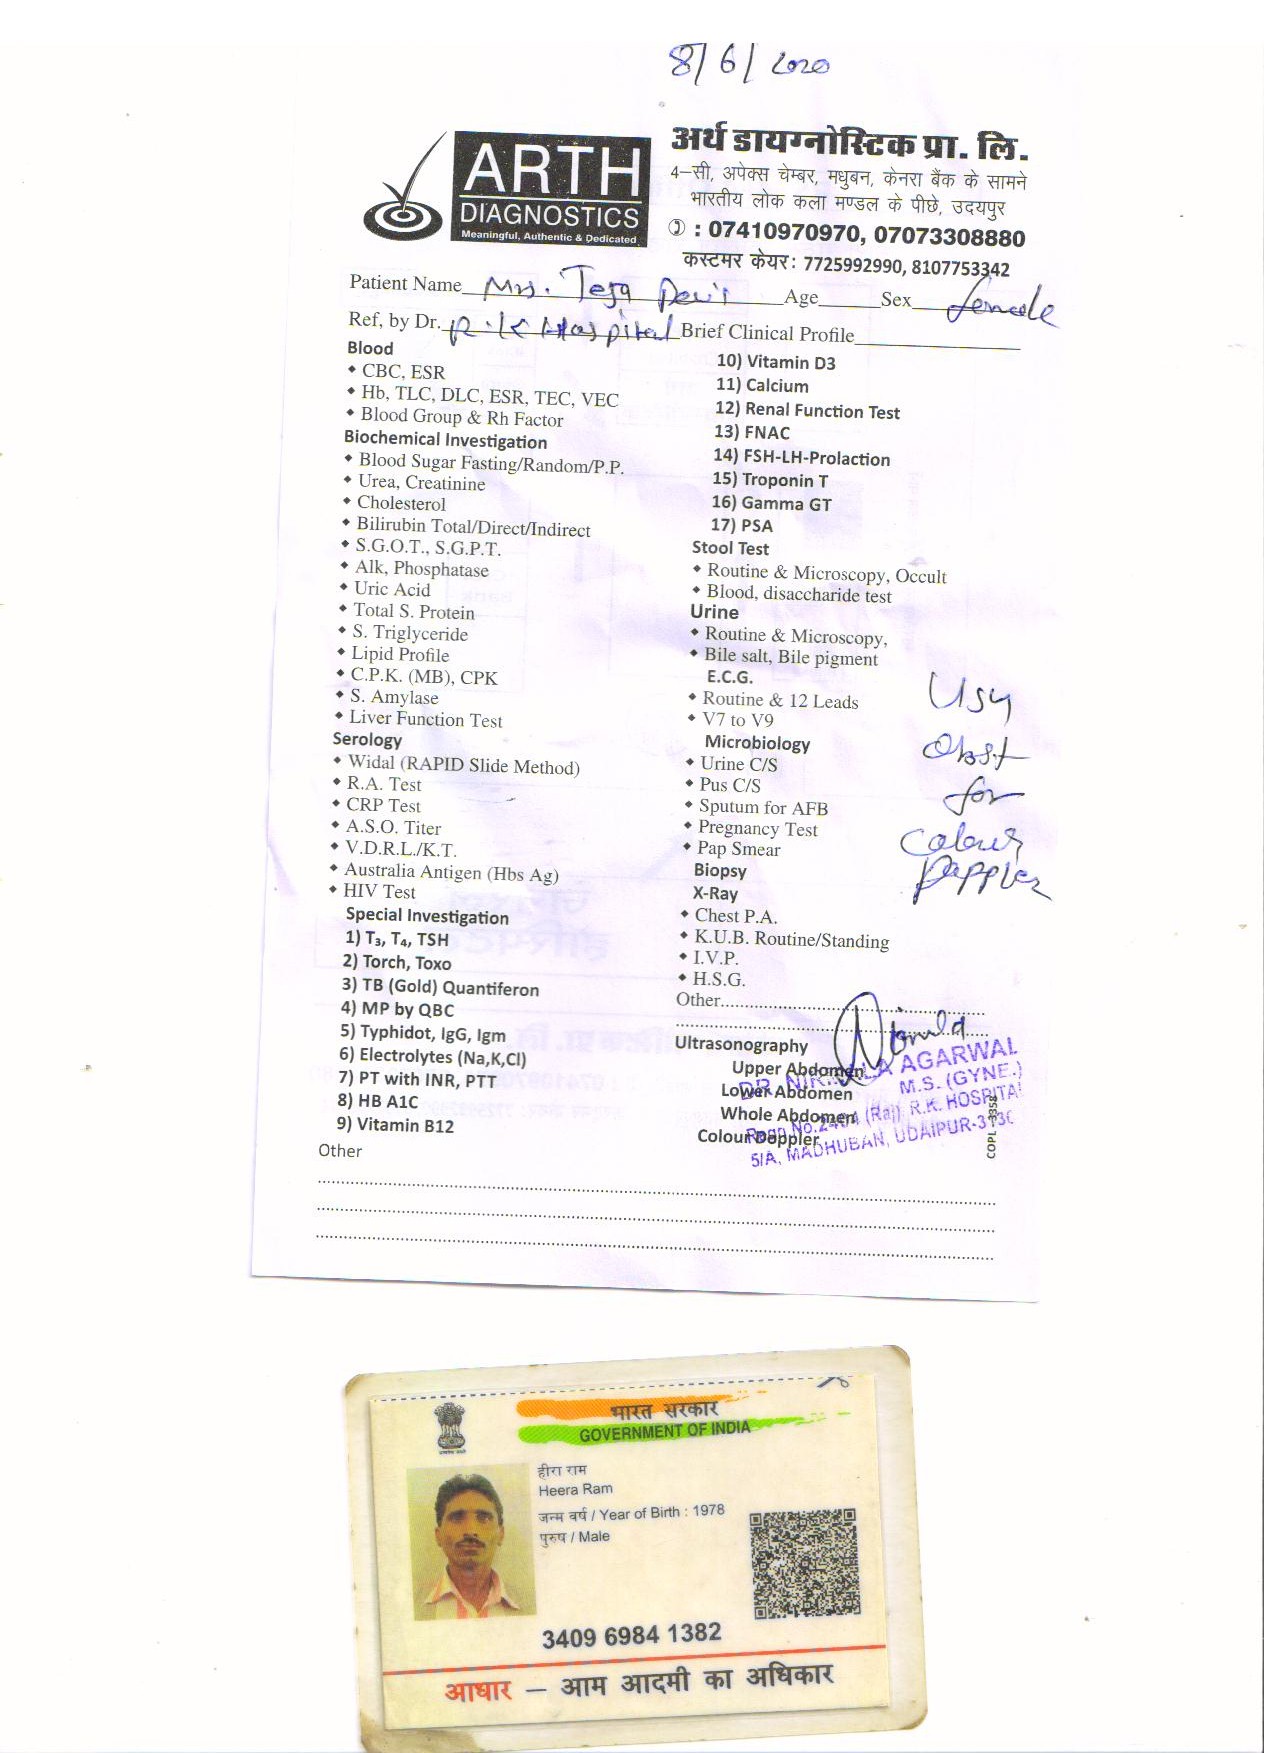 8/6/2020
ARTH
DIAGNOSTICS
Meaningful, Authentic & Dedicated
अर्थ डायग्नोस्टिक प्रा. लि.
4–सी, अपेक्स चेम्बर, मधुबन, केनरा बैंक के सामने
भारतीय लोक कला मण्डल के पीछे, उदयपुर
: 07410970970, 07073308880
कस्टमर केयर: 7725992990, 8107753342
Patient Name Mrs. Teja Devi Age Sex female
Ref, by Dr. R.K Hospital Brief Clinical Profile
Blood
CBC, ESR
Hb, TLC, DLC, ESR, TEC, VEC
Blood Group & Rh Factor
Biochemical Investigation
Blood Sugar Fasting/Random/P.P.
Urea, Creatinine
Cholesterol
Bilirubin Total/Direct/Indirect
S.G.O.T., S.G.P.T.
Alk, Phosphatase
Uric Acid
Total S. Protein
S. Triglyceride
Lipid Profile
C.P.K. (MB), CPK
S. Amylase
Liver Function Test
Serology
Widal (RAPID Slide Method)
R.A. Test
CRP Test
A.S.O. Titer
V.D.R.L./K.T.
Australia Antigen (Hbs Ag)
HIV Test
Special Investigation
1) T₃, T₄, TSH
2) Torch, Toxo
3) TB (Gold) Quantiferon
4) MP by QBC
5) Typhidot, IgG, Igm
6) Electrolytes (Na,K,Cl)
7) PT with INR, PTT
8) HB A1C
9) Vitamin B12
Other
10) Vitamin D3
11) Calcium
12) Renal Function Test
13) FNAC
14) FSH-LH-Prolaction
15) Troponin T
16) Gamma GT
17) PSA
Stool Test
Routine & Microscopy, Occult
Blood, disaccharide test
Urine
Routine & Microscopy,
Bile salt, Bile pigment
E.C.G.
Routine & 12 Leads
V7 to V9
Microbiology
Urine C/S
Pus C/S
Sputum for AFB
Pregnancy Test
Pap Smear
Biopsy
X-Ray
Chest P.A.
K.U.B. Routine/Standing
I.V.P.
H.S.G.
Other
Ultrasonography
Upper Abdomen
Lower Abdomen
Whole Abdomen
Colour Doppler
USG
Obst
for
Colour
Doppler
DR. NIRMALA AGARWAL
M.S. (GYNE.)
(Raj) R.K. HOSPITAL
5/A, MADHUBAN, UDAIPUR-313
COPL
भारत सरकार
GOVERNMENT OF INDIA
हीरा राम
Heera Ram
जन्म वर्ष / Year of Birth : 1978
पुरुष / Male
3409 6984 1382
आधार – आम आदमी का अधिकार